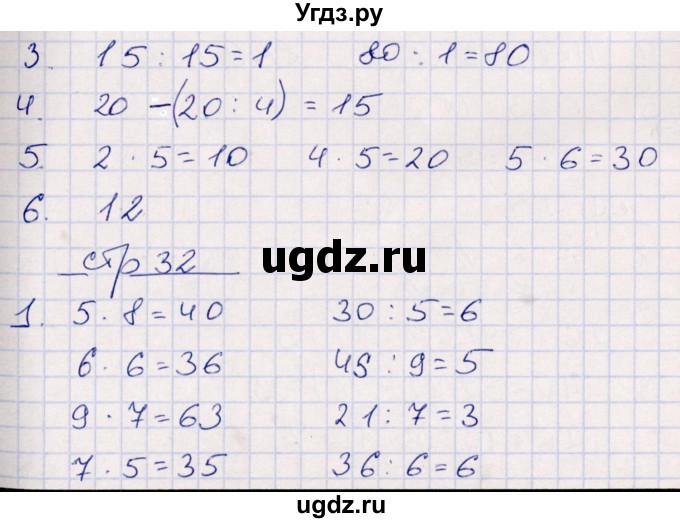 Угдз.ру
3. 15 : 15 = 1 80 : 1 = 80
4. 20 - (20 : 4) = 15
5. 2 · 5 = 10 4 · 5 = 20 5 · 6 = 30
6. 12
стр 32
ugdz.ru
1. 5 · 8 = 40 30 : 5 = 6
6 · 6 = 36 45 : 9 = 5
9 · 7 = 63 21 : 7 = 3
7 · 5 = 35 36 : 6 = 6
ugdz.ru